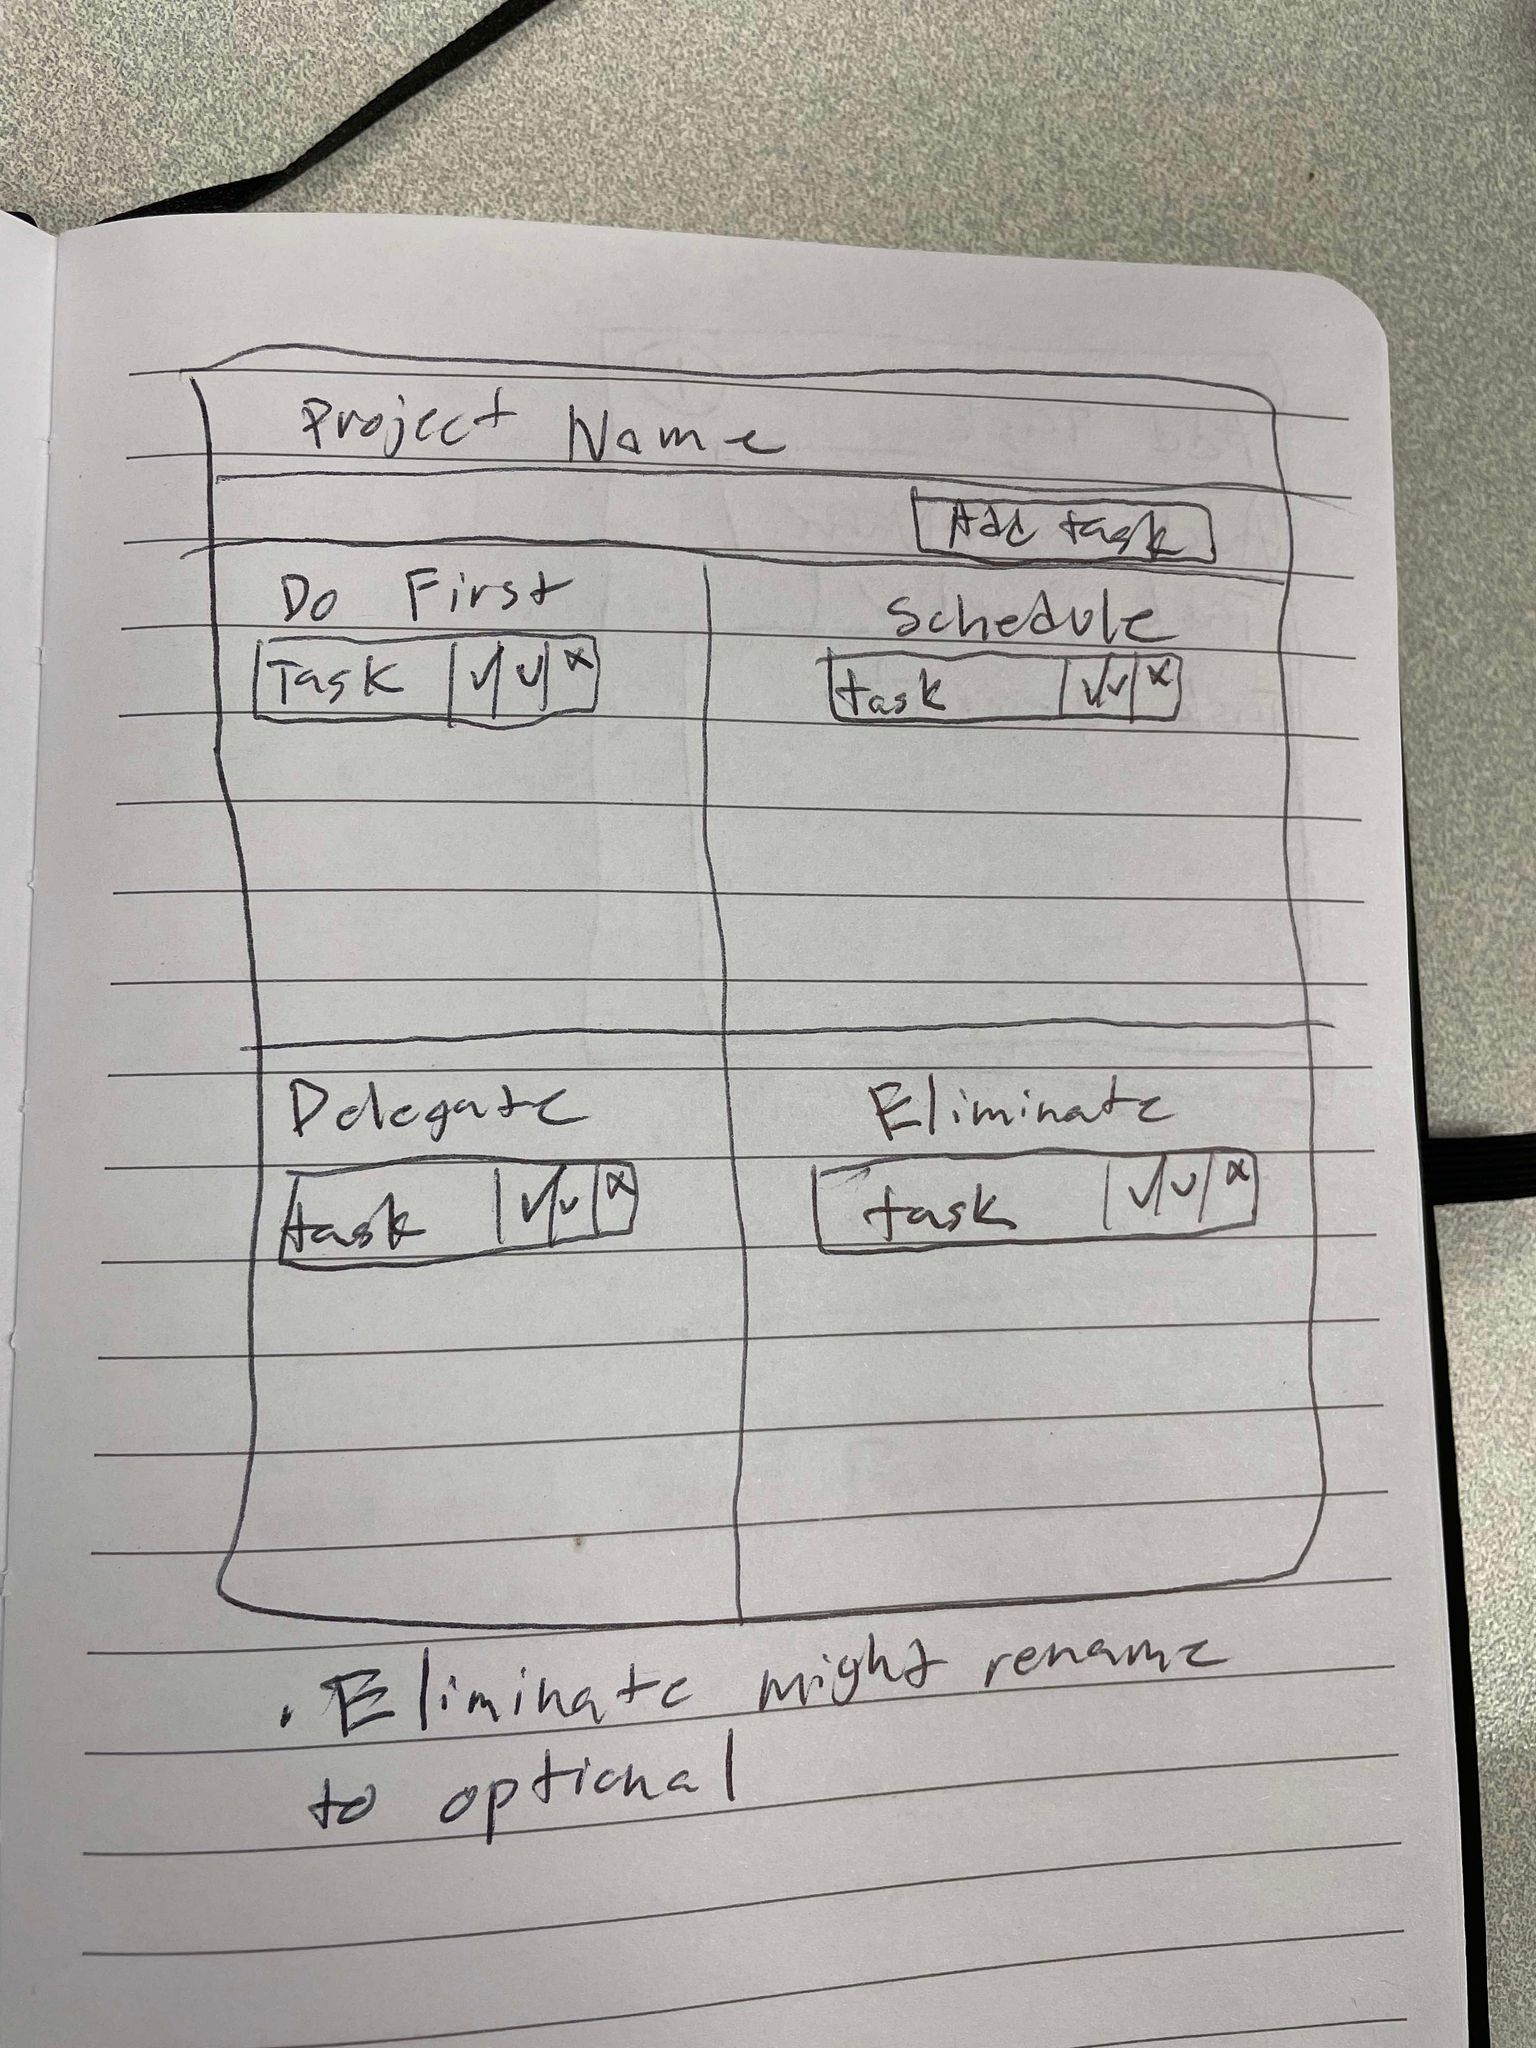 Project Name
Add task
Do First
Schedule
Task | ✓ | ✓ | x
task | ✓ | ✓ | x
Delegate
Eliminate
task | ✓ | ✓ | x
task | ✓ | ✓ | x
. Eliminate might rename
to optional